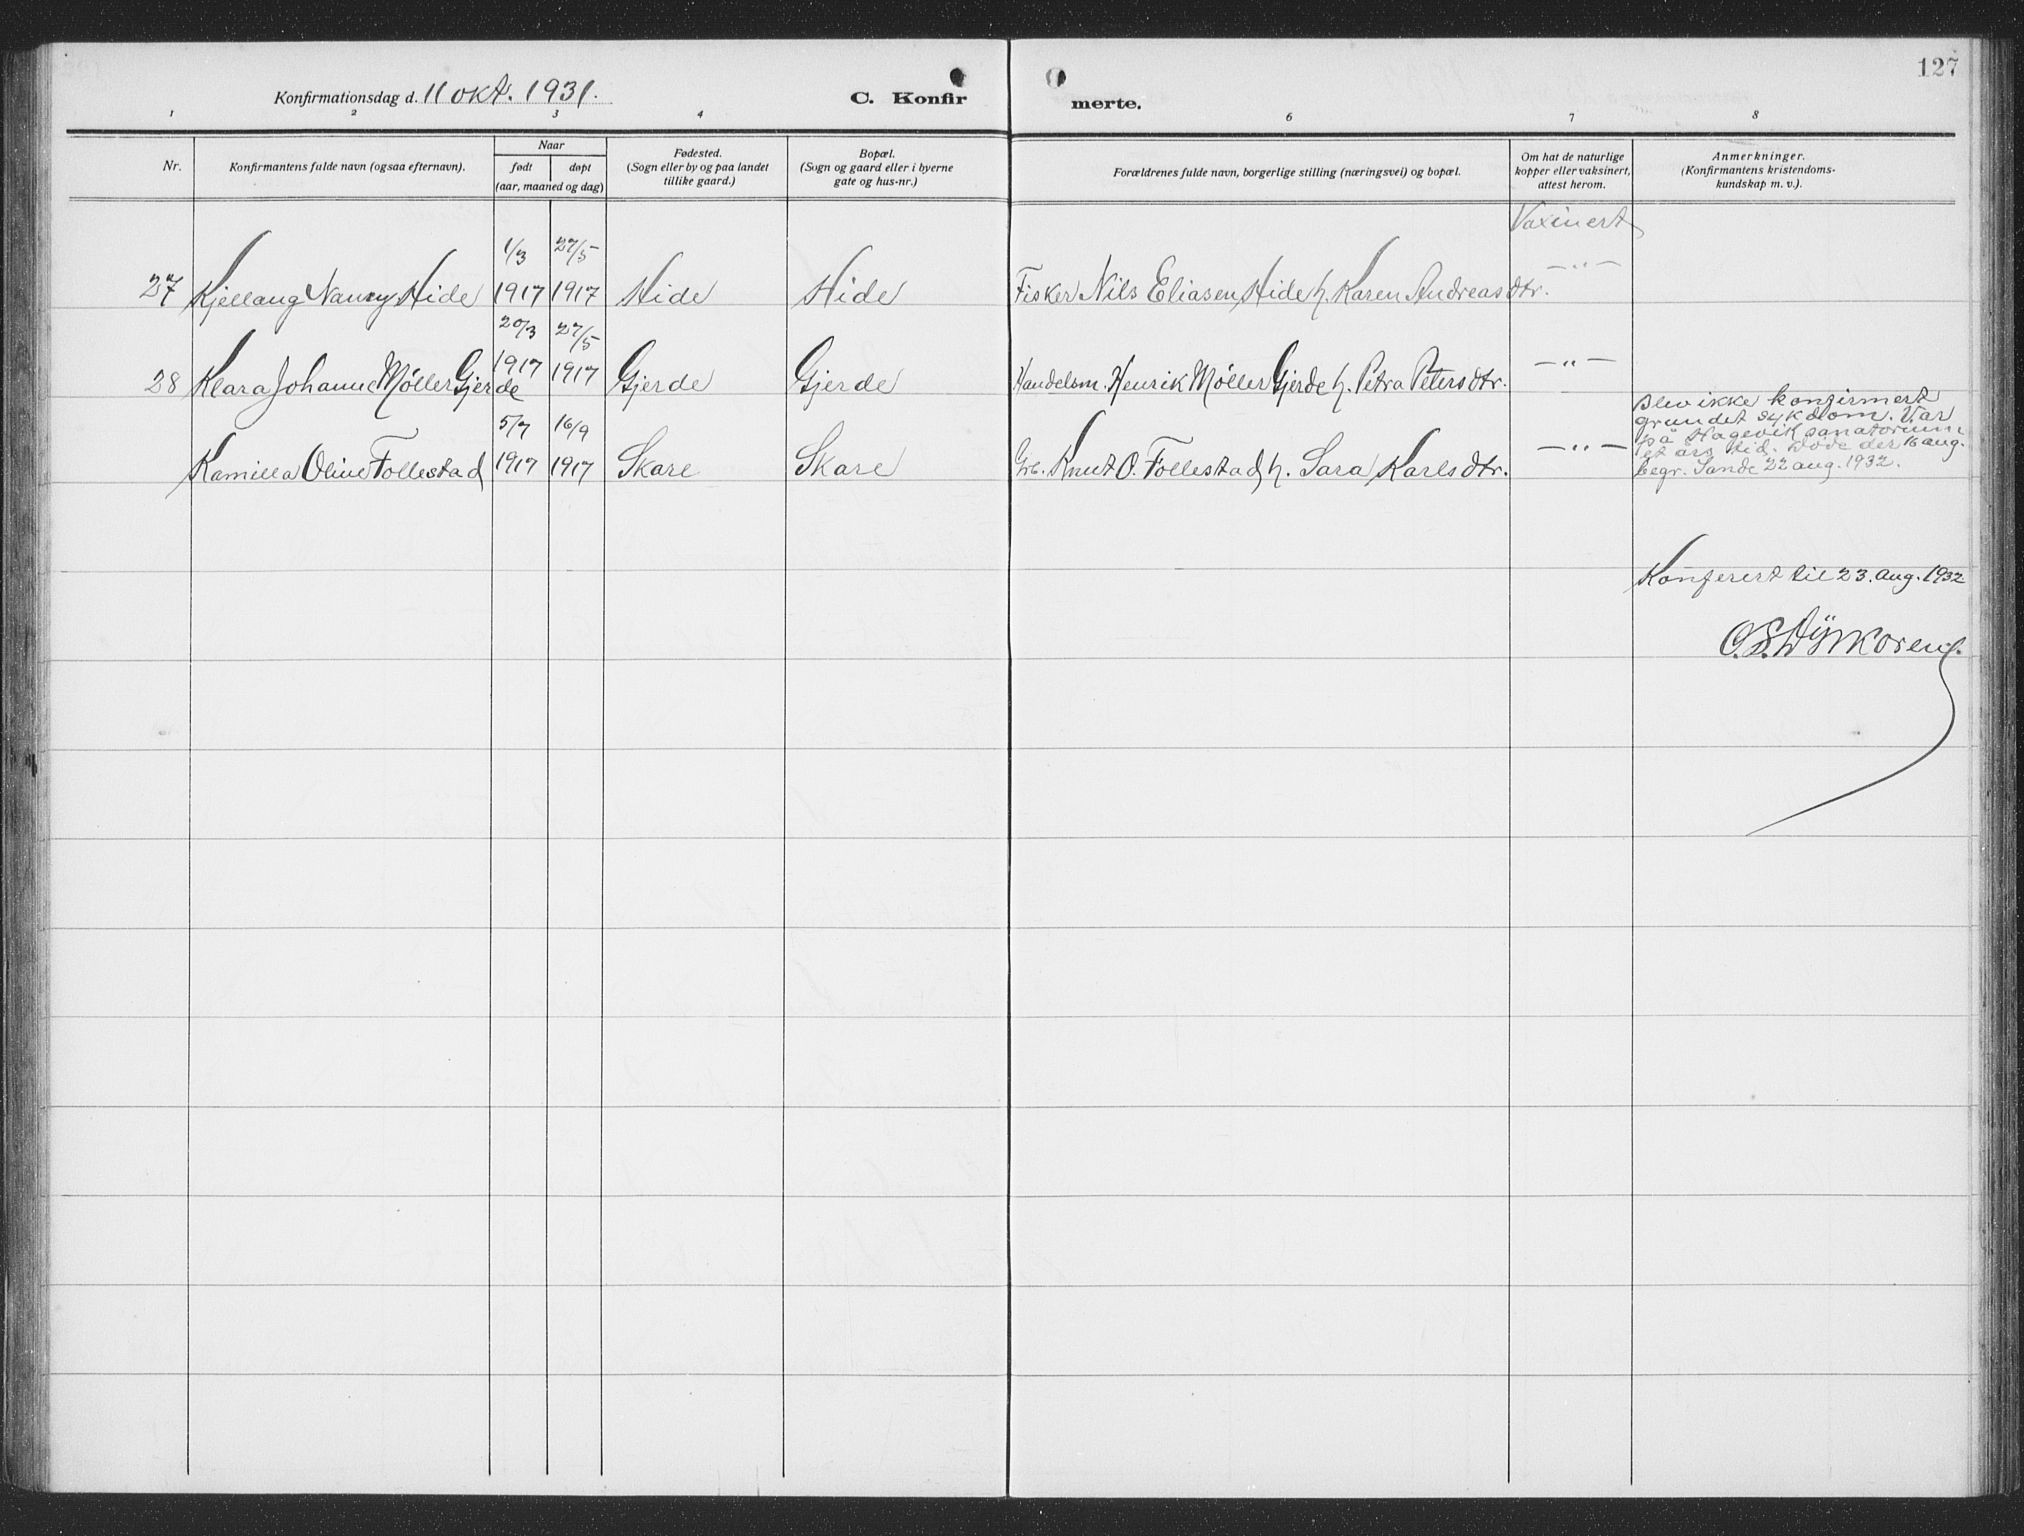 127
Konfirmationsdag d. 11 okt. 1931.
C. Konfir merte.
1 2 3 4 5 6 7 8
Nr.
Konfirmantens fulde navn (ogsaa efternavn).
Naar
født døpt
(aar, maaned og dag)
Fødested.
(Sogn eller by og paa landet
tillike gaard.)
Bopæl.
(Sogn og gaard eller i byerne
gate og hus-nr.)
Forældrenes fulde navn, borgerlige stilling (næringsvei) og bopæl.
Om hat de naturlige
kopper eller vaksinert,
attest herom.
Anmerkninger.
(Konfirmantens kristendoms-
kundskap m. v.).
Vaxinert
1/3 27/5
27 Kjellaug Nancy Hide 1917 1917 Hide Hide Fisker Nils Eliasen Hide h. Karen Andreasdtr. —"—
20/3 27/5
28 Klara Johanne Møller Gjerde 1917 1917 Gjerde Gjerde Handelsm. Henrik Møller Gjerde h. Petra Petersdtr. —"—
5/7 16/9
Kamilla Oline Follestad 1917 1917 Skare Skare Grb. Knut O. Follestad h. Sara Karlsdtr. —"—
Blev ikke konfirmert
grundet sykdom. Var
på Hagevik sanatorium
et års tid. Døde der 16 aug.
begr. Sande 22 aug. 1932.
Konferert til 23. aug. 1932